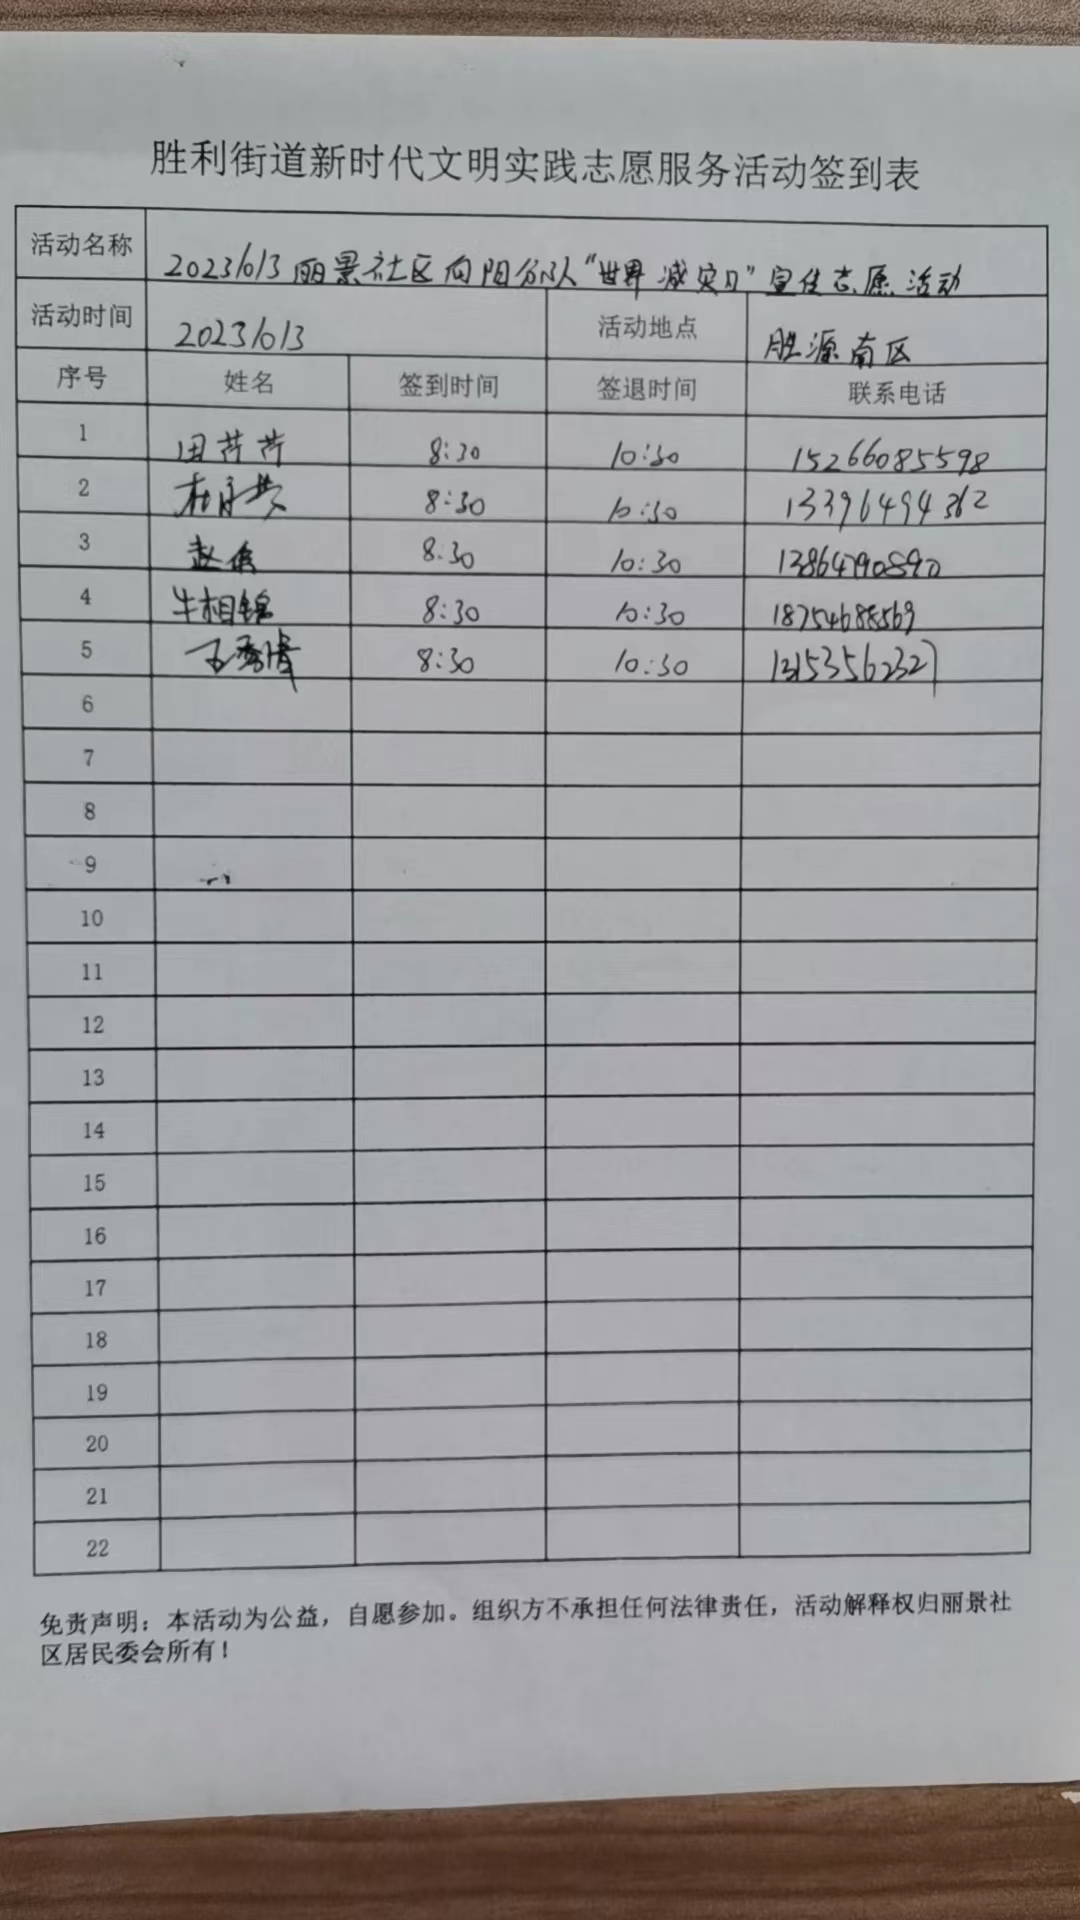 胜利街道新时代文明实践志愿服务活动签到表
活动名称 20231013丽景社区向阳分队“世界减灾日”宣传志愿活动
活动时间 20231013 活动地点 胜源南区
序号 姓名 签到时间 签退时间 联系电话
1 田芹芹 8:30 10:30 15266085598
2 8:30 10:30 13396494362
3 赵倩 8:30 10:30 13864790890
4 牛相锦 8:30 10:30 18754688569
5 8:30 10:30
6
7
8
9
10
11
12
13
14
15
16
17
18
19
20
21
22
免责声明：本活动为公益，自愿参加。组织方不承担任何法律责任，活动解释权归丽景社
区居民委会所有！